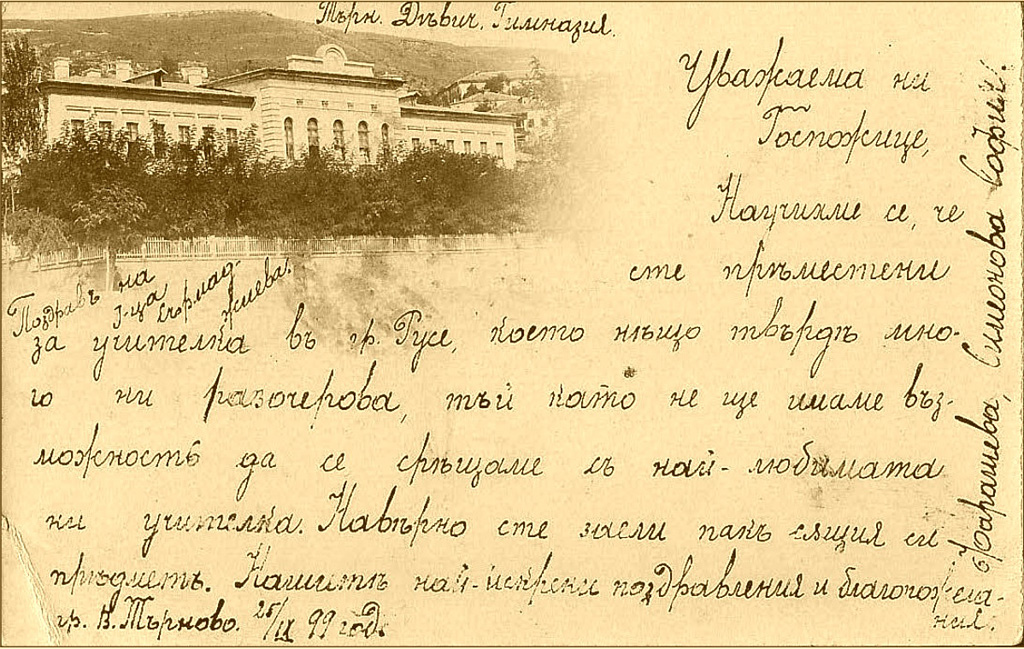 Търн. Дѣвич. Гимназия.
Уважаема ни
Госпожице,
Научихме се, че
сте прѣместени
за учителка въ гр. Русе, което нѣщо твърдѣ мно-
го ни разочерова, тъй като не ще имаме въз-
можность да се срѣщаме съ най-любимата
ни учителка. Навѣрно сте заели пакъ сѫщия си
прѣдметъ. Нашитѣ най-искрени поздравления и благопожела-
ния.
гр. В. Търново. 25/IX 99 год.
Поздравъ на
Г-ца
жиева.
Симеонова Софий.